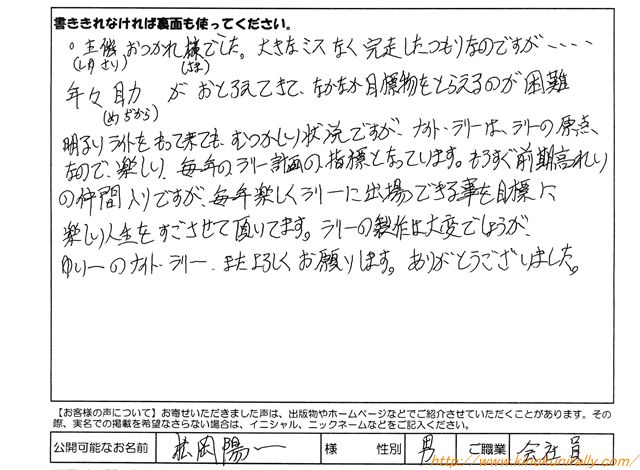 書ききれなければ裏面も使ってください。
○主催 おつかれ様でした。大きなミスなく完走したつもりなのですが・・・・
(さま)
年々 目力 がおとろえてきて、なかなか目標物をとらえるのが困難
(めぢから)
明るいライトをもって来ても、むつかしい状況ですが、ナイト・ラリーは、ラリーの原点、
なので、楽しい、毎年のラリー計画の指標となっています。もうすぐ前期高れい
の仲間入りですが、毎年楽しくラリーに出場できる事を目標に
楽しい人生をすごさせて頂いてます。ラリーの製作は大変でしょうが、
ゆい一のナイト・ラリー、またよろしくお願いします。ありがとうございました。
【お客様の声について】お寄せいただきました声は、出版物やホームページなどでご紹介させていただくことがあります。その
際、実名での掲載を希望なさらない場合は、イニシャル、ニックネームなどをご記入ください。
公開可能なお名前 松岡陽一 様 性別 男 ご職業 会社員